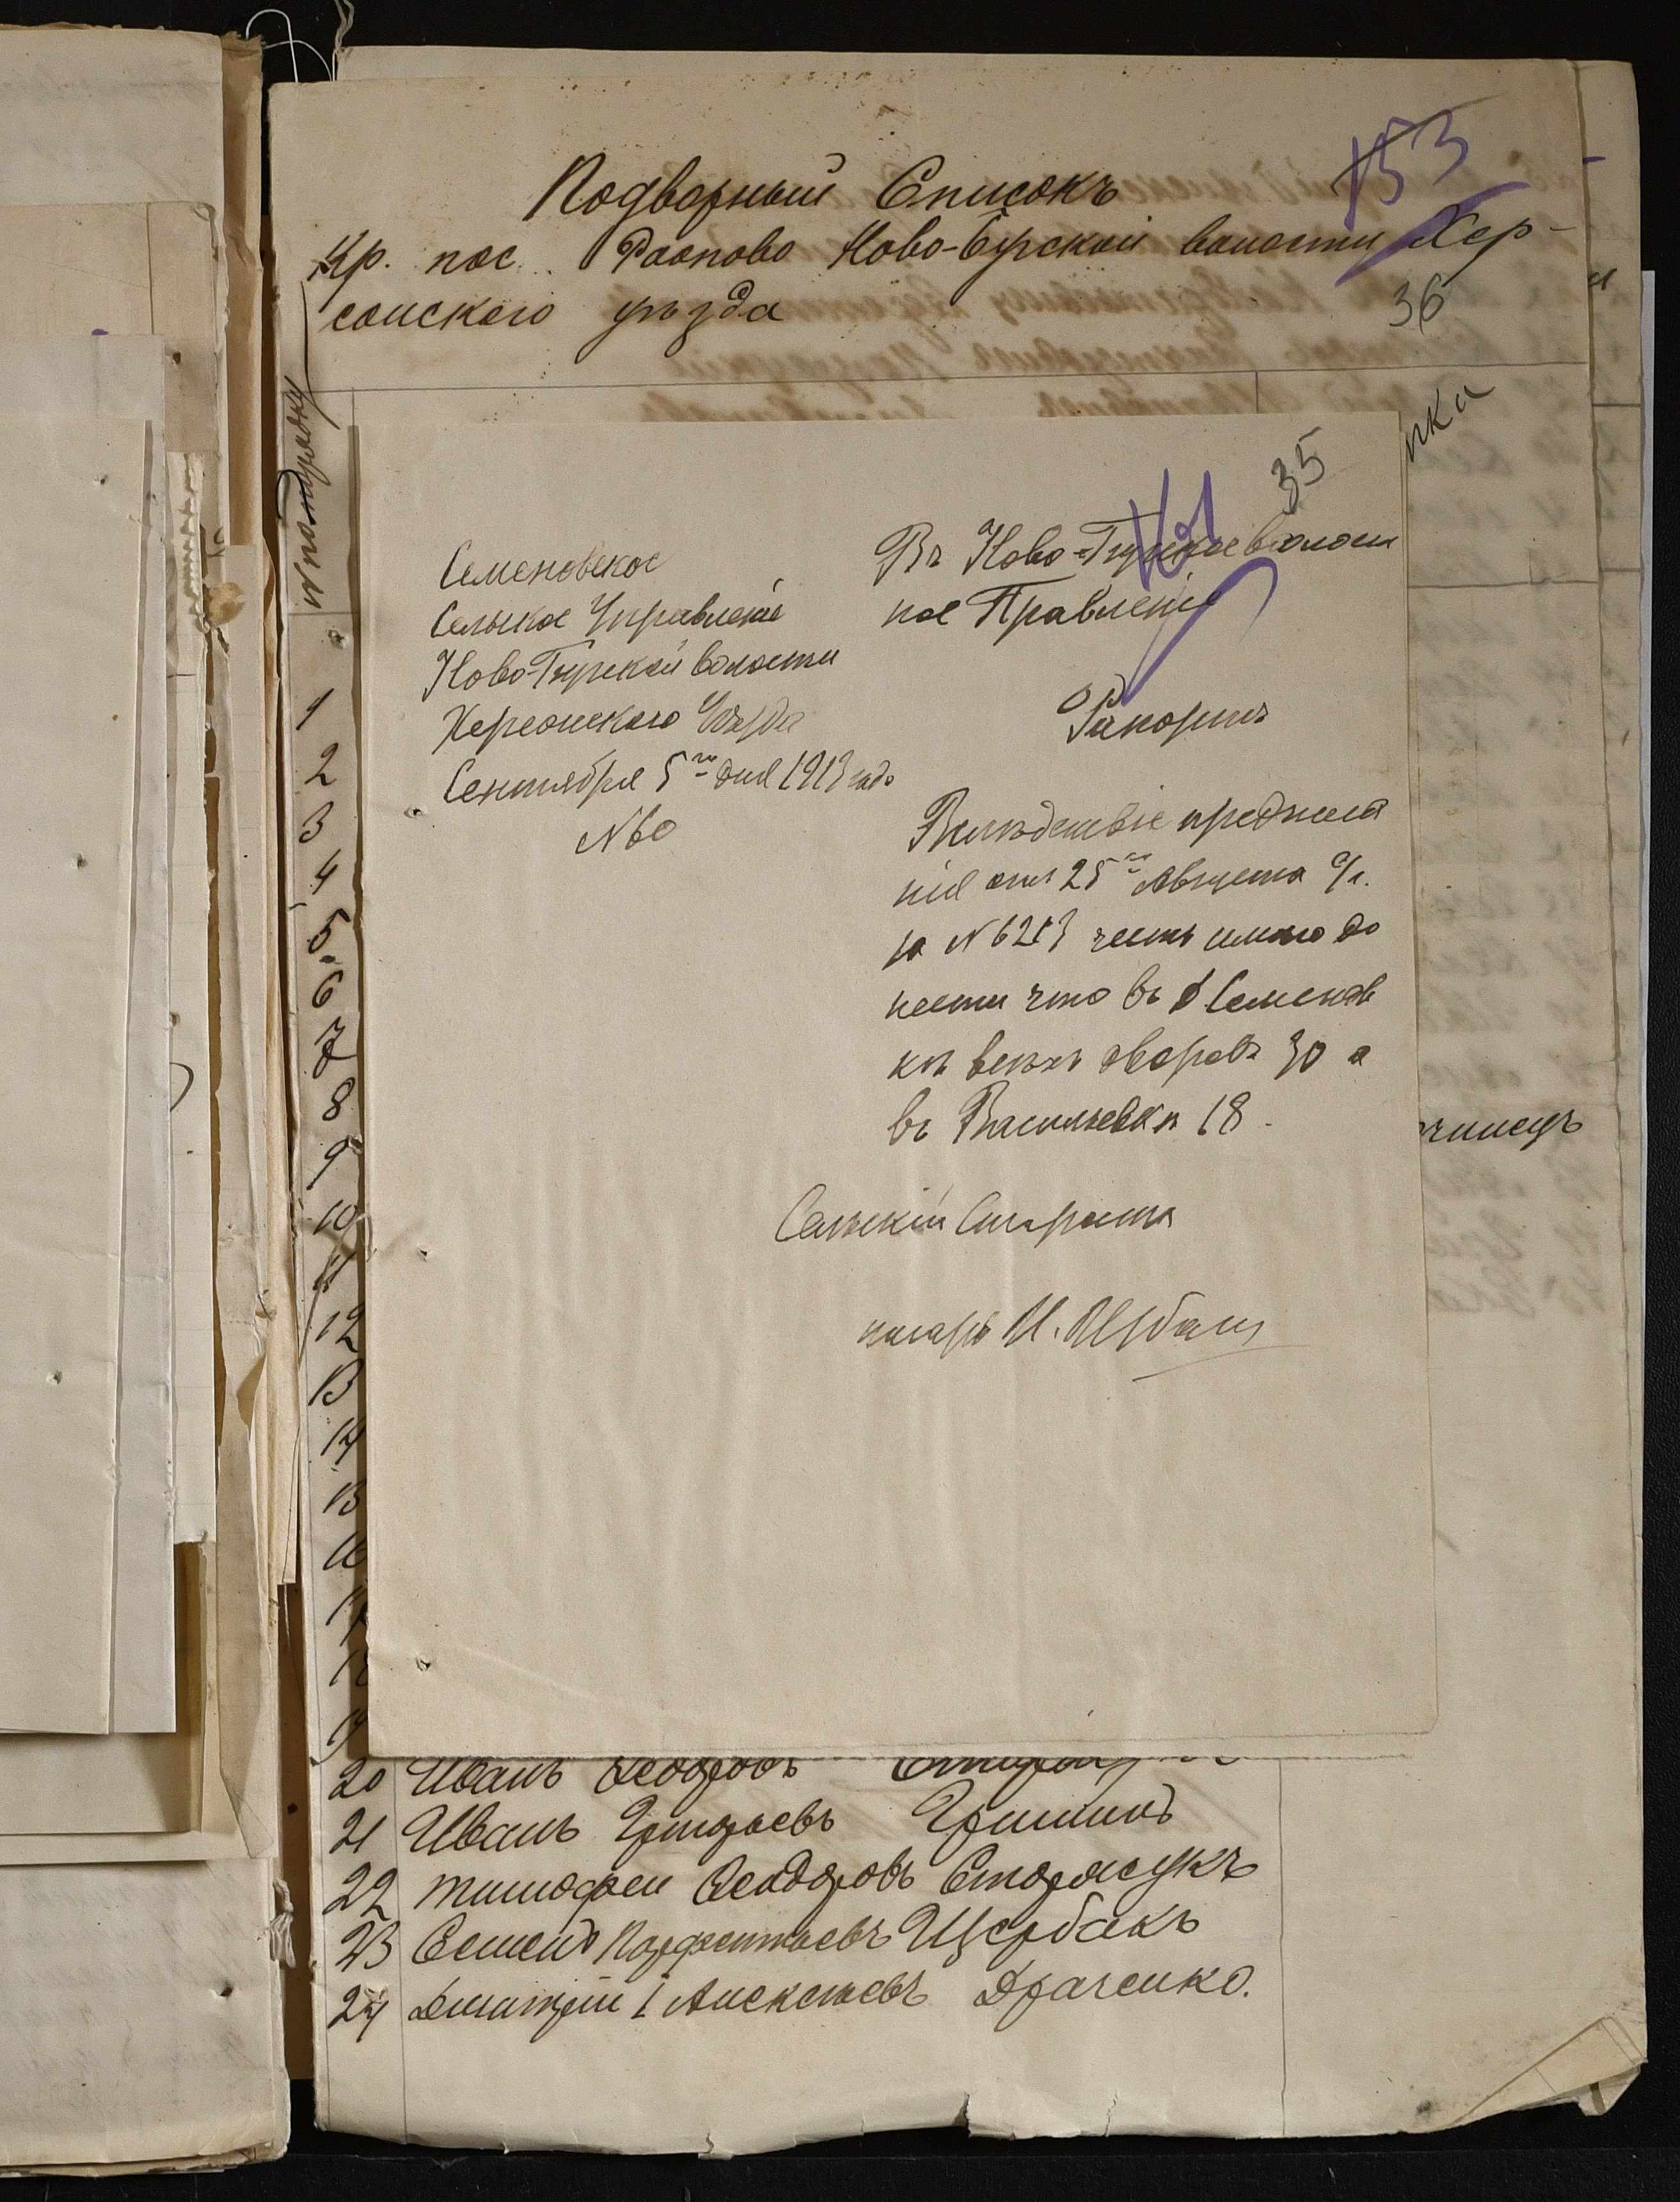 153
Подворный Списокъ
Кр. пос. Ново-Бугской волости Хер-
сонскаго уѣзда
36
№ по порядку
нка
35
Семеновское
Сельское Управленіе
Ново-Бугской волости
Херсонскаго Уѣзда
Сентября 5го дня 1913 года
№60
Въ Ново-Бугское волост
ное Правленіе
Рапортъ
Вслѣдствіе предписа
нія отъ 25го Августа с/г.
за № 6213 честь имѣю до
нести что въ д Семенов
кѣ всѣхъ дворовъ 30 а
въ Васильевкѣ 18.
Сельскій Староста
писарь И.
1
2
3
4
5.
6
7
8
9
10
11
12
13
14
15
16
17
18
19
20 Иванъ Ѳеодоровъ
21 Иванъ Григорьевъ
22 Тимофей Ѳеодоровъ Сторожукъ
23 Семенъ Парфентьевъ Щербакъ
24 Дмитрій 1 Алексѣевъ Драченко.